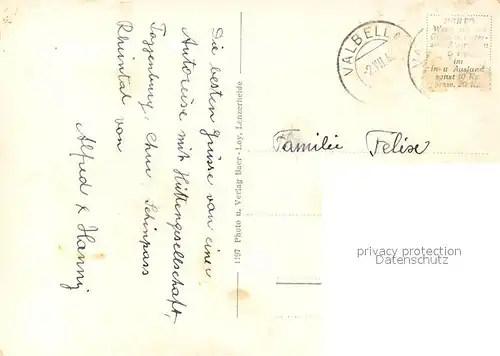 Die besten Grüsse von einer
Autoreise mit Hüttengesellschaft,
Toggenburg, Chur, Schinpass
Rheintal von
Alfred & Hanny
1197 Photo u. Verlag Baer-Loy, Lenzerheide
VALBELLA
-2.VIII.
VA
PORTO
im
In- u. Ausland
sonst 10 Rp.
bezw. 20 Rp.
Familie Felix
privacy protection
Datenschutz